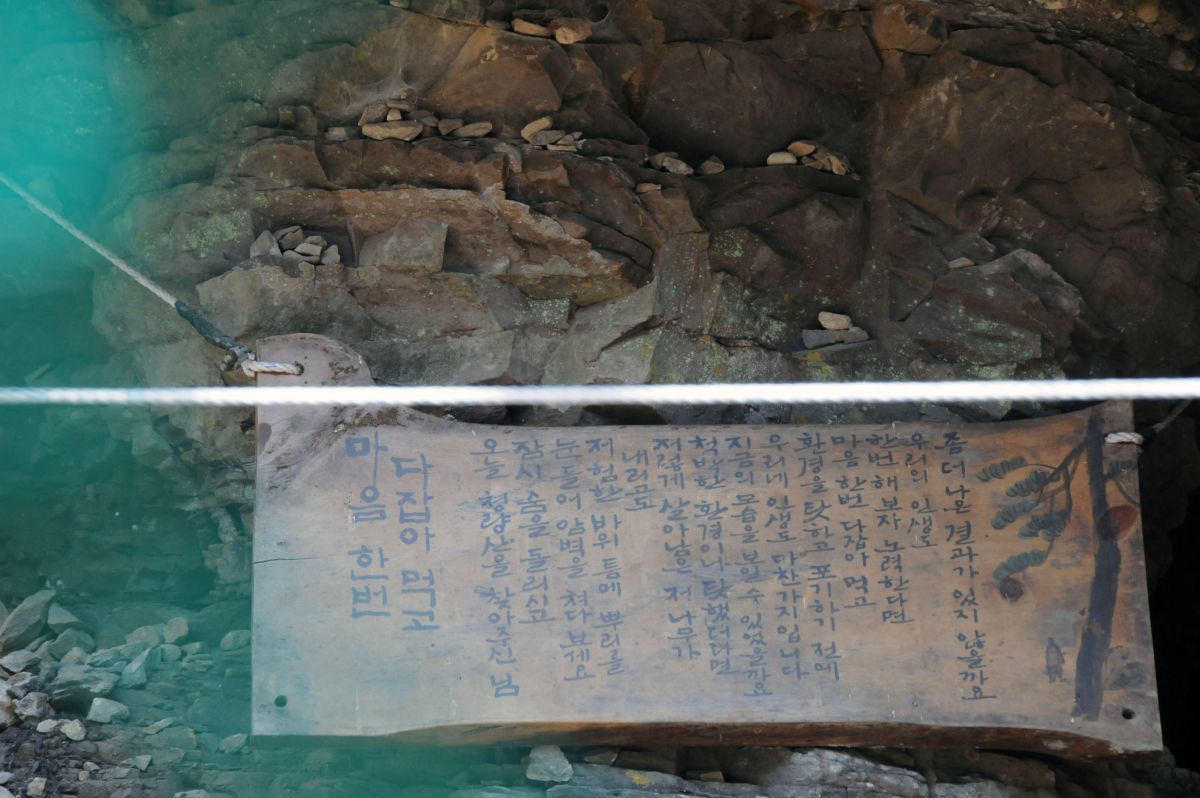 마음 한번
다잡아 먹고
오늘 청량산을 찾아주신 님
잠시 숨을 돌리시고
눈들어 암벽을 쳐다보세요
저 험한 바위 틈에 뿌리를
내리고도
저렇게 살아남은 저 나무가
척박한 환경이나 탓했더라면
지금의 모습을 보일 수 있었을까요
우리네 인생도 마찬가지입니다
환경을 탓하고 포기하기 전에
마음 한번 다잡아 먹고
한번 해보자 노력한다면
우리의 인생도
좀 더 나은 결과가 있지 않을까요